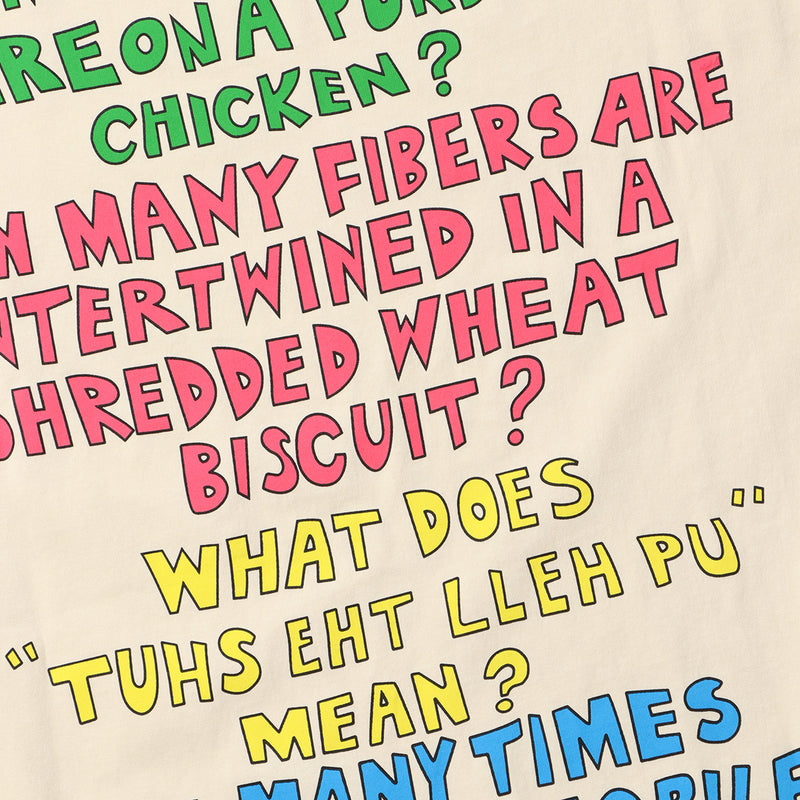 ARE ON A
CHICKEN?
MANY FIBERS ARE
INTERTWINED IN A
SHREDDED WHEAT
BISCUIT?
WHAT DOES
"TUHS EHT LLEH PU"
MEAN?
MANY TIMES